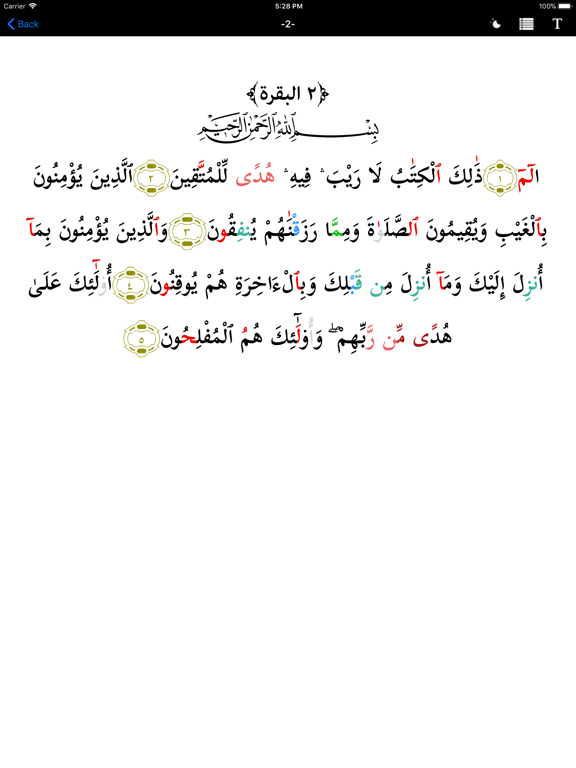 Carrier 5:28 PM 100%
Back -2- T
﴿٢ البقرة﴾
بِسْمِ ٱللَّهِ ٱلرَّحْمَٰنِ ٱلرَّحِيمِ
الٓمٓ ١ ذَٰلِكَ ٱلْكِتَٰبُ لَا رَيْبَ ۛ فِيهِ ۛ هُدًى لِّلْمُتَّقِينَ ٢ ٱلَّذِينَ يُؤْمِنُونَ
بِٱلْغَيْبِ وَيُقِيمُونَ ٱلصَّلَوٰةَ وَمِمَّا رَزَقْنَٰهُمْ يُنفِقُونَ ٣ وَٱلَّذِينَ يُؤْمِنُونَ بِمَآ
أُنزِلَ إِلَيْكَ وَمَآ أُنزِلَ مِن قَبْلِكَ وَبِٱلْءَاخِرَةِ هُمْ يُوقِنُونَ ٤ أُو۟لَٰٓئِكَ عَلَىٰ
هُدًى مِّن رَّبِّهِمْ ۖ وَأُو۟لَٰٓئِكَ هُمُ ٱلْمُفْلِحُونَ ٥